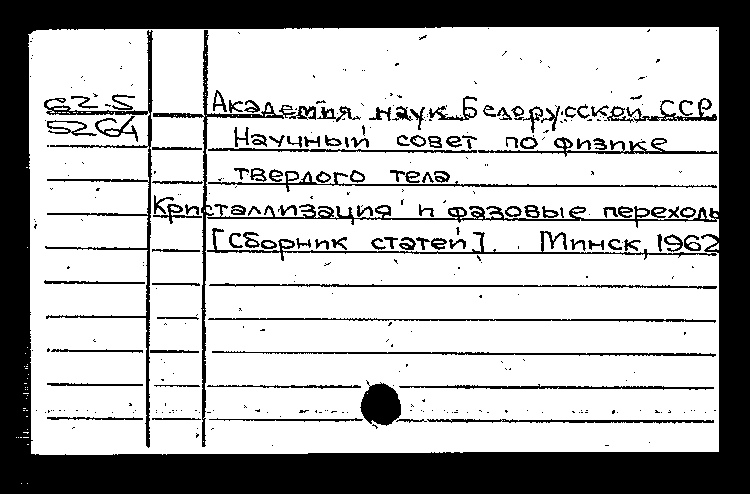 62-5 Академия наук Белорусской ССР.
5264 Научный совет по физике
твердого тела.
Кристаллизация и фазовые переходы
[Сборник статей]. Минск, 1962